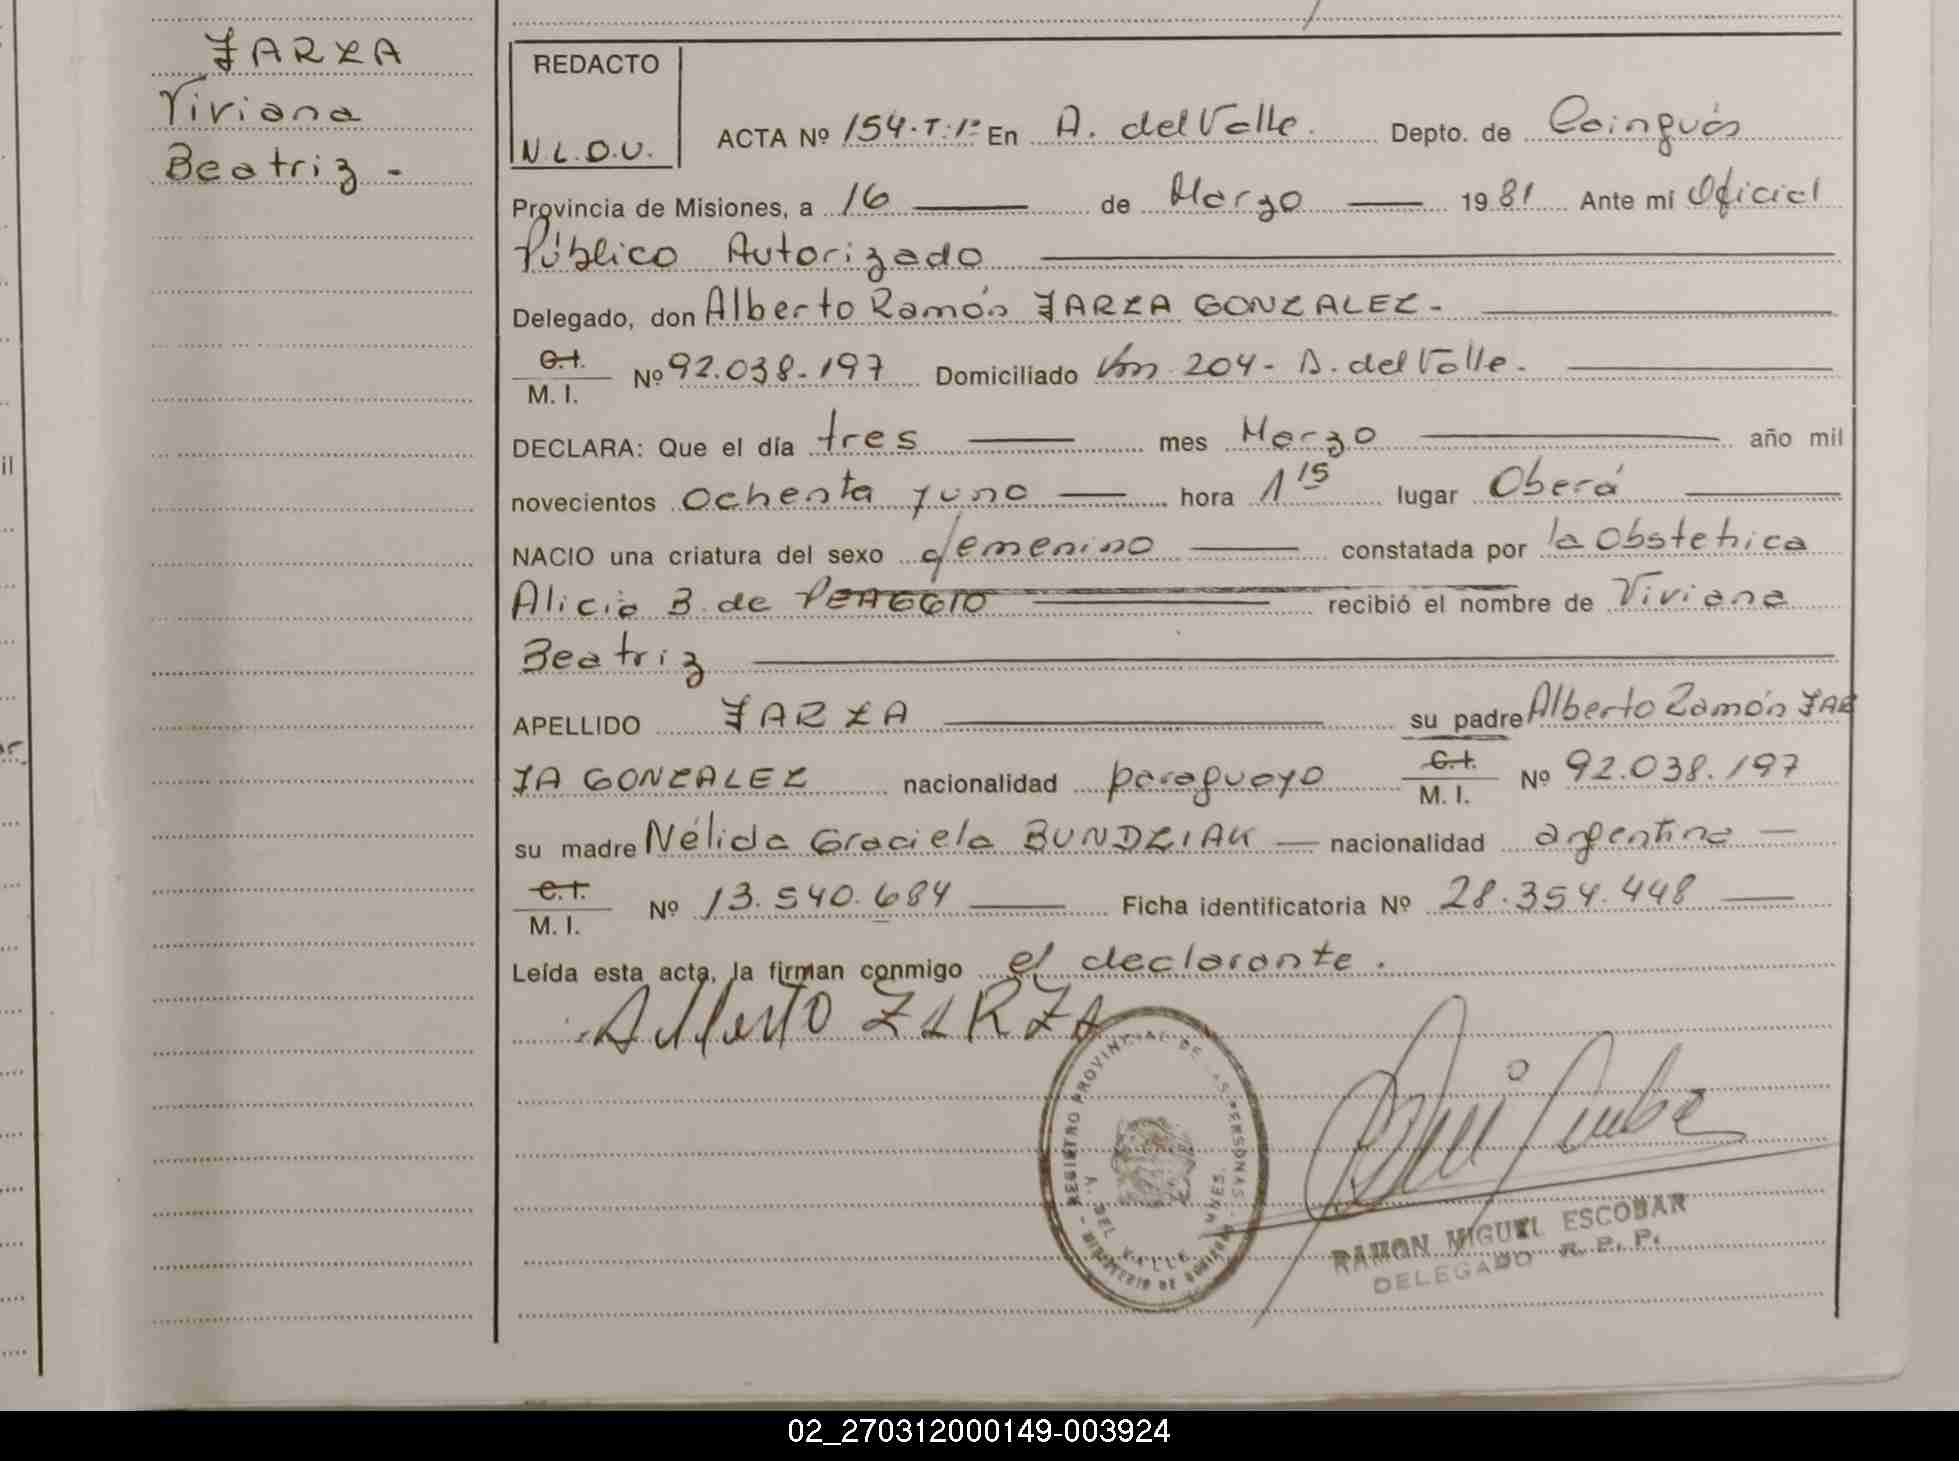 ZARZA
Viviana
Beatriz -
REDACTO
N.L.D.U.
ACTA Nº 154-T:1º En A. del Valle. Depto. de Cainguás
Provincia de Misiones, a 16 de Marzo 1981 Ante mí Oficial
Público Autorizado
Delegado, don Alberto Ramón ZARZA GONZALEZ -
C.I.
M. I. Nº 92.038.197 Domiciliado Km 204 - A. del Valle -
DECLARA: Que el día tres mes Marzo año mil
novecientos ochenta y uno hora 1 15 lugar Oberá
NACIO una criatura del sexo femenino constatada por la Obstetrica
Alicia B. de PEAGGIO recibió el nombre de Viviana
Beatriz
APELLIDO ZARZA su padre Alberto Ramón ZAR
ZA GONZALEZ nacionalidad paraguayo C.I. M. I. Nº 92.038.197
su madre Nélida Graciela BUNDZIAK — nacionalidad argentina —
C.I.
M. I. Nº 13.540.684 Ficha identificatoria Nº 28.354.448
Leída esta acta, la firman conmigo el declarante.
Alberto ZARZA
REGISTRO PROVINCIAL DE LAS PERSONAS
A. DEL VALLE MNES.
RAMON MIGUEL ESCOBAR
DELEGADO R. P. P.
il
02_270312000149-003924